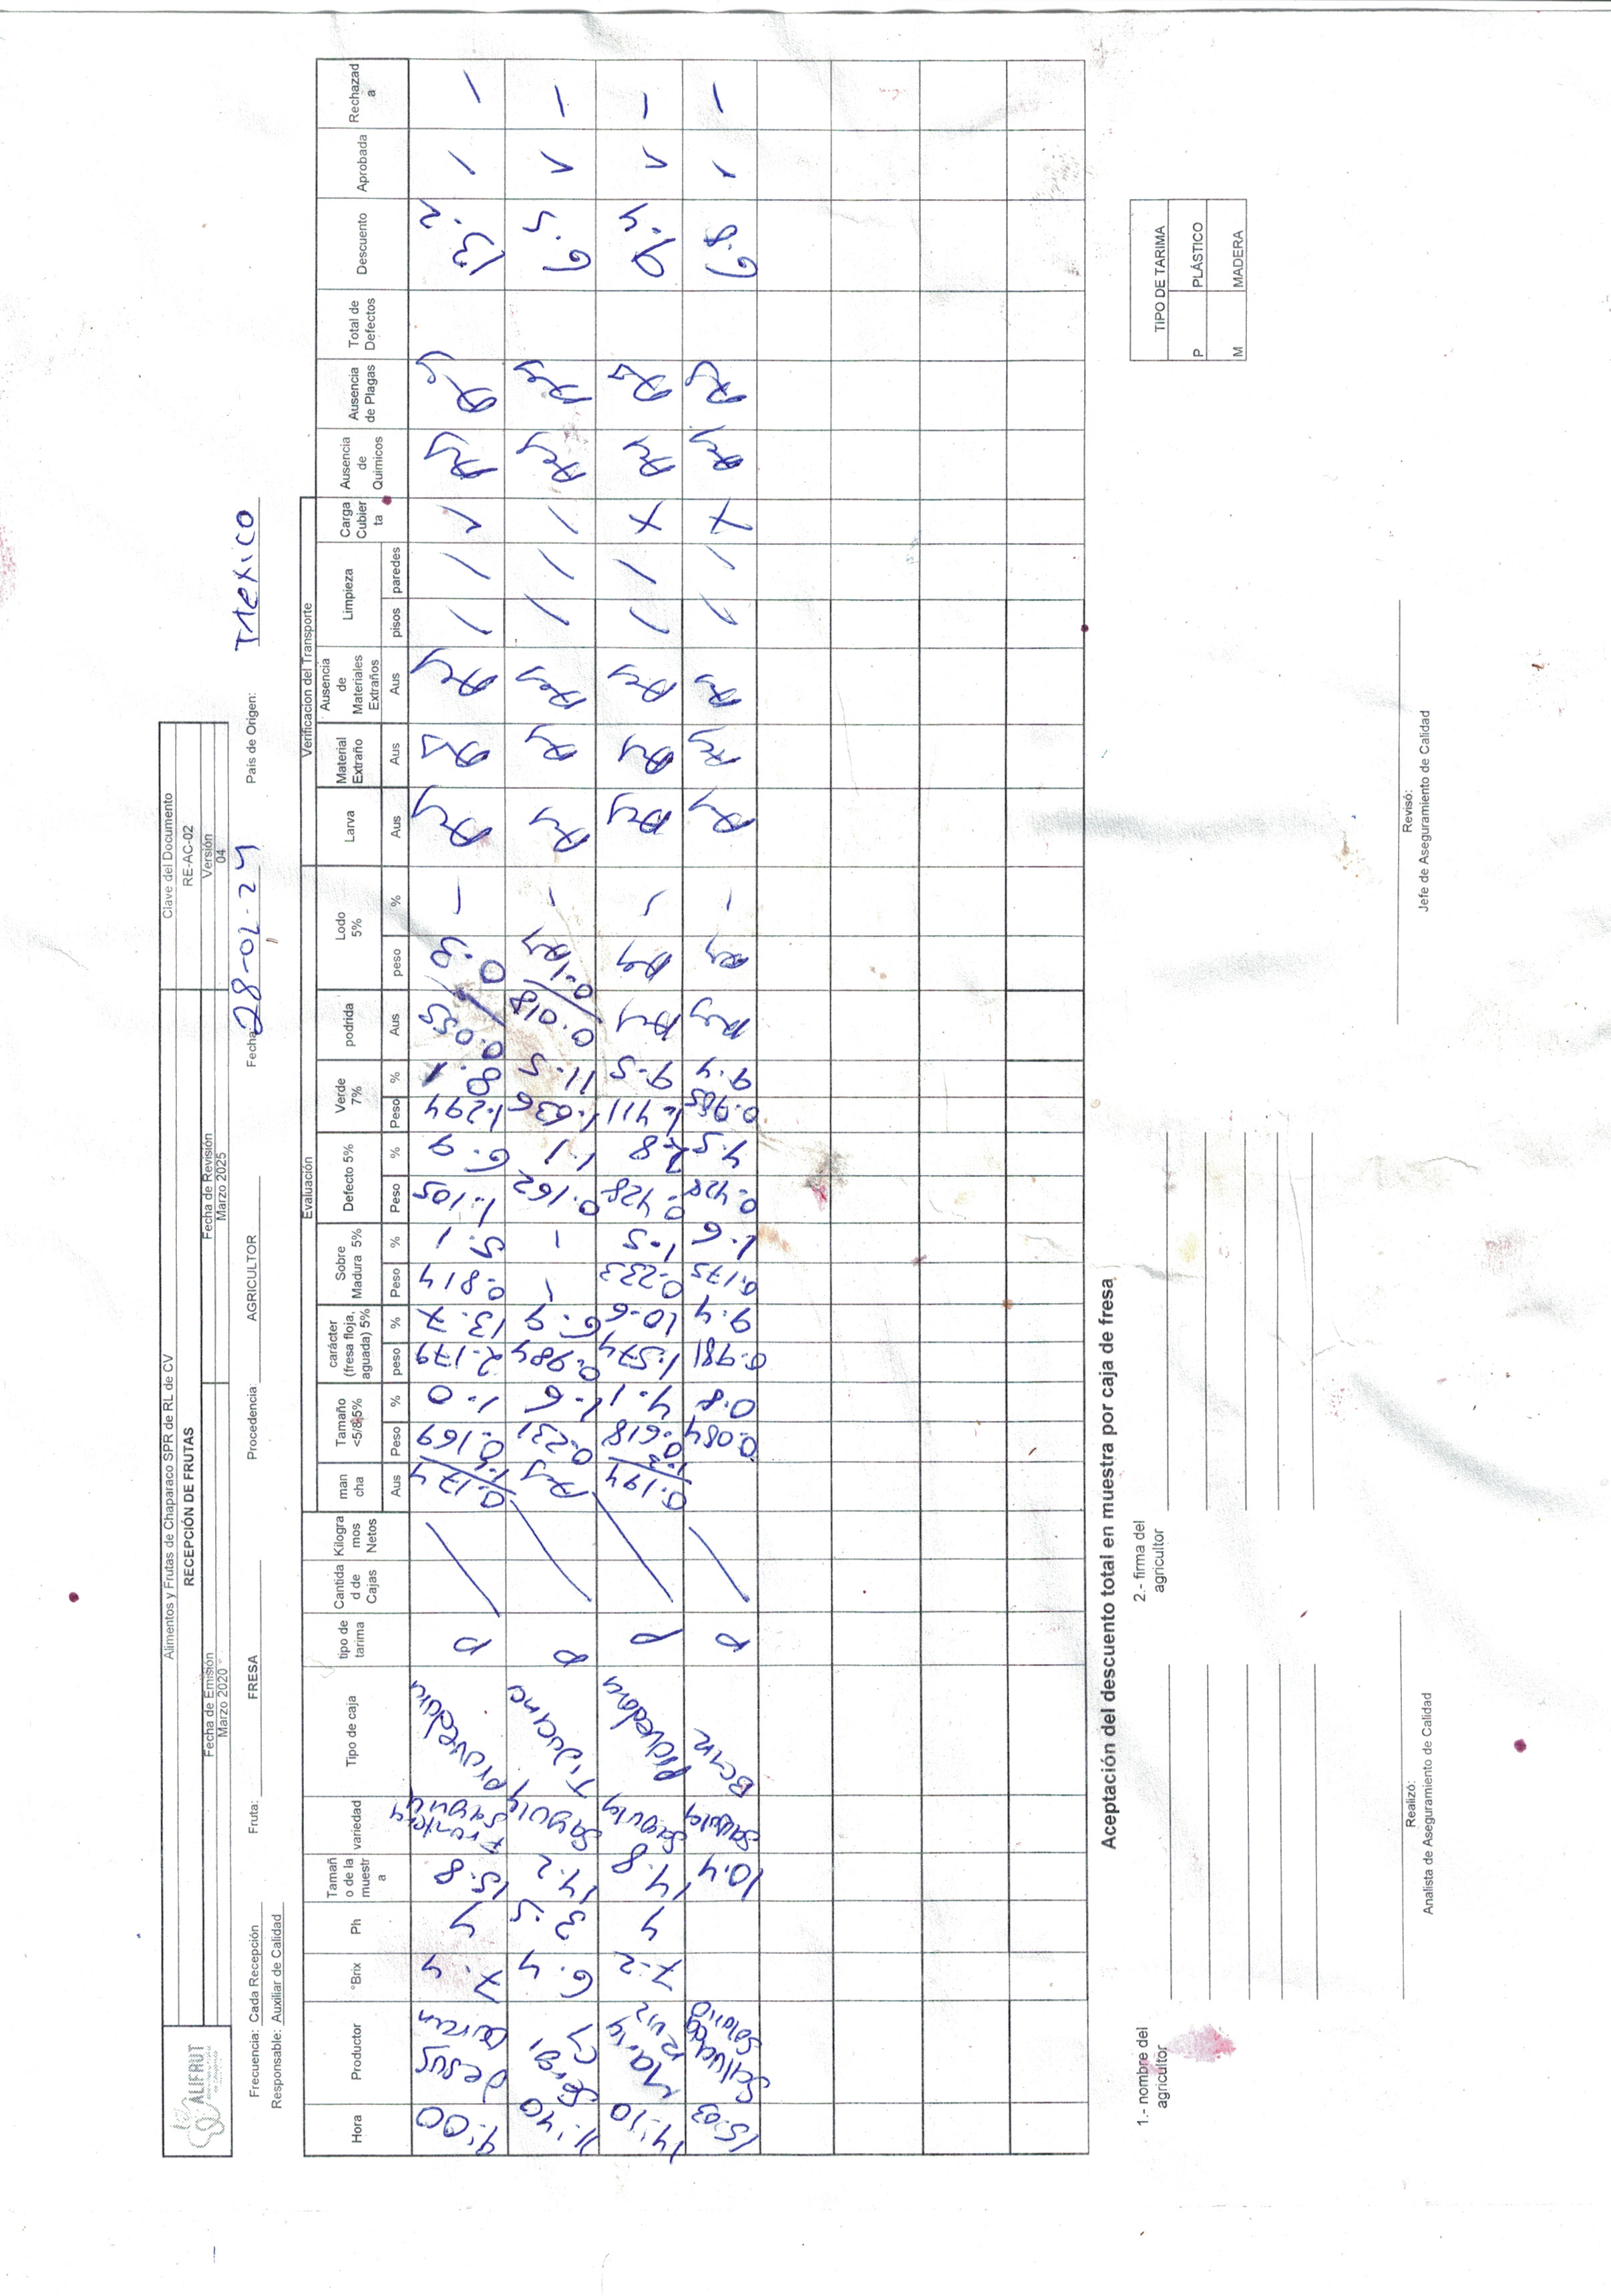 ALIFRUT
Alimentos y Frutas de Chaparaco SPR de RL de CV
RECEPCIÓN DE FRUTAS
Fecha de Emisión
Marzo 2020
Fecha de Revisión
Marzo 2025
Clave del Documento
RE-AC-02
Versión
04
Frecuencia: Cada Recepción Fruta: FRESA Procedencia: AGRICULTOR Fecha: 28-02-24 País de Origen: Mexico
Responsable: Auxiliar de Calidad
Evaluación Verificacion del Transporte
Hora Productor °Brix Ph Tamaño de la muestra variedad Tipo de caja tipo de tarima Cantidad de Cajas Kilogramos Netos mancha Tamaño <5/8 5% carácter (fresa floja, aguada) 5% Sobre Madura 5% Defecto 5% Verde 7% podrida Lodo 5% Larva Material Extraño Ausencia de Materiales Extraños Limpieza Carga Cubierta Ausencia de Quimicos Ausencia de Plagas Total de Defectos Descuento Aprobada Rechazada
Aus Peso % peso % Peso % Peso % Peso % Aus peso % Aus Aus Aus pisos paredes
9:00 Jesus Duran 7.4 4 15.8 Frontera Sayula Provedora P 0.174 0.169 1.0 2.179 13.7 0.814 5.1 1.105 6.9 1.294 8.1 0.055 0.3 - Aus Aus Aus / / ✓ Aus Aus 13.2 - -
11:40 Sergi Cy 6.4 3.5 14.2 Sayula Tijuana P Aus 0.231 1.6 0.984 6.9 - - 0.162 1.1 1.636 11.5 0.018 0.1 Aus - Aus Aus Aus / / / Aus Aus 6.5 ✓ -
14:10 Maria Ruiz 7.2 4 14.8 Sayula Provedora P 0.194 1.3 0.618 4.1 1.574 10.6 0.233 1.5 0.428 2.8 1.411 9.5 Aus Aus - Aus Aus Aus / / X Aus Aus 9.4 ✓ -
15:03 Salvador Solorio 10.4 Sayula P 0.084 0.8 0.981 9.4 0.175 1.6 0.428 4.5 0.985 9.4 Aus Aus - Aus Aus Aus / / X Aus Aus 6.8 ✓ -
Aceptación del descuento total en muestra por caja de fresa
1.- nombre del agricultor
2.- firma del agricultor
TIPO DE TARIMA
P PLÁSTICO
M MADERA
Realizó:
Analista de Aseguramiento de Calidad
Revisó:
Jefe de Aseguramiento de Calidad